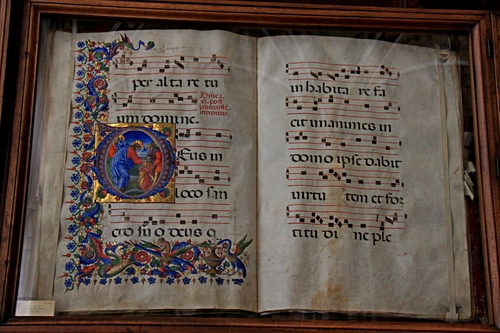 per alta re tu
um domine.
Dnica
xi. post
DEus in
loco san
cto suo deus q
inhabita re fa
cit unanimes in
domo ipse dabit
virtu tem et for
titu di ne ple